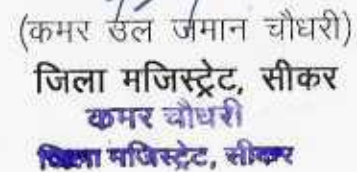 (कमर उल जमान चौधरी)
जिला मजिस्ट्रेट, सीकर
कमर चौधरी
जिला मजिस्ट्रेट, सीकर